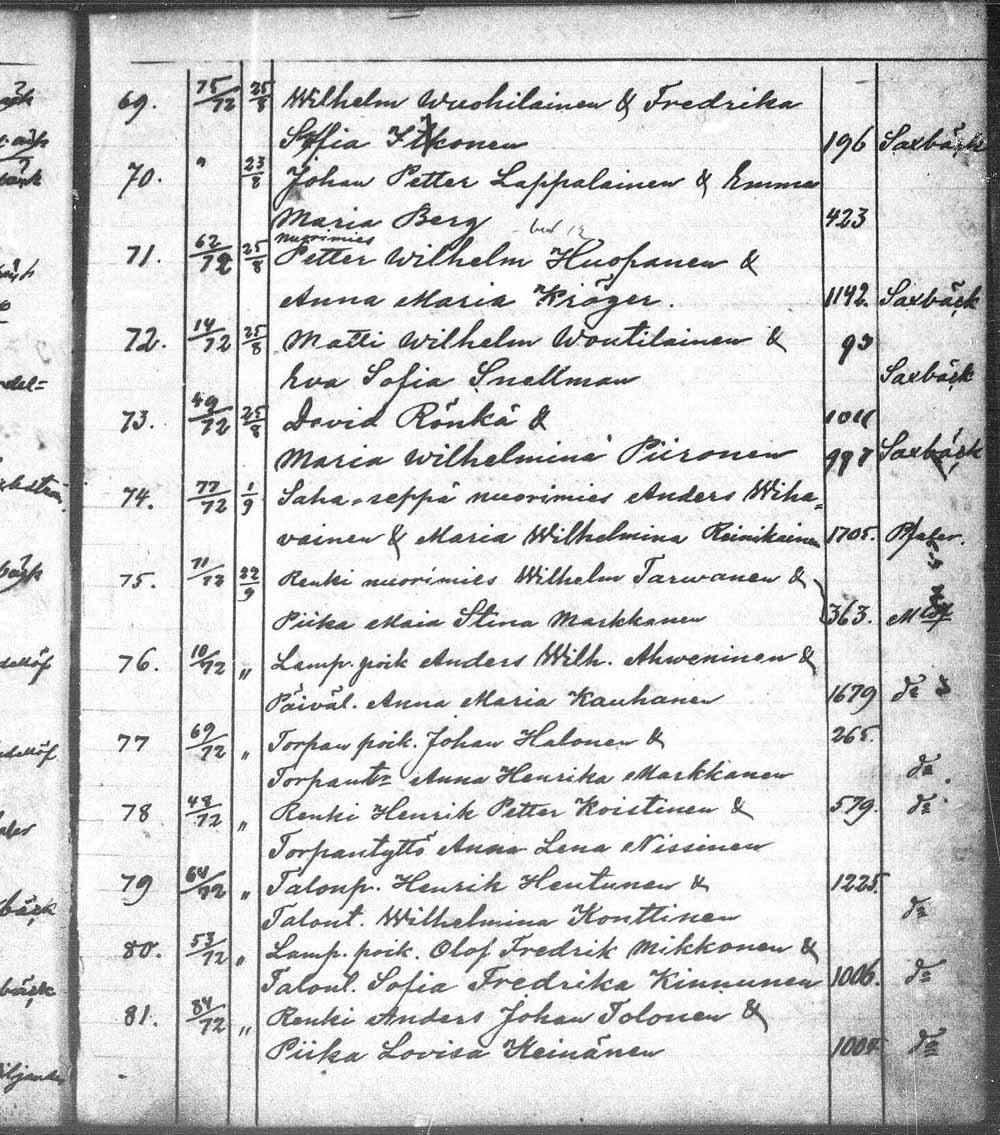 69. 75/72 25/8 Wilhelm Wuohilainen & Fredrika
Sofia Itkonen 196 Saxbäck
70. " 23/8 Johan Petter Lappalainen & Emma
Maria Berg 423
nuorimies
71. 62/72 25/8 Petter Wilhelm Huopanen &
Anna Maria Kröger. 1142. Saxbäck
72. 14/72 25/8 Matti Wilhelm Woutilainen & 93
Eva Sofia Snellman Saxbäck
73. 49/72 25/8 David Rönkä & 1011
Maria Wilhelmina Piironen 997 Saxbäck
74. 77/72 1/9 Saha-seppä nuorimies Anders Wiha=
vainen & Maria Wilhelmina Reinikainen 1705.
75. 71/72 22/9 Renki nuorimies Wilhelm Tarwanen &
Piika Maia Stina Markkanen 363.
76. 10/72 " Lamp. poik Anders Wilh. Ahweninen &
Päiväl. Anna Maria Kauhanen 1679 do
77 69/72 " Torpan poik. Johan Halonen & 265.
Torpantr Anna Henrika Markkanen do.
78 48/72 " Renki Henrik Petter Koistinen & 579. do
Torpantyttö Anna Lena Nissinen
79 64/72 " Talonp. Henrik Hentunen & 1225.
Talont. Wilhelmina Konttinen do
80. 53/72 " Lamp. poik. Olof Fredrik Mikkonen &
Talont. Sofia Fredrika Kinnunen 1006. do
81. 84/72 " Renki Anders Johan Tolonen &
Piika Lovisa Keinänen 1004 do